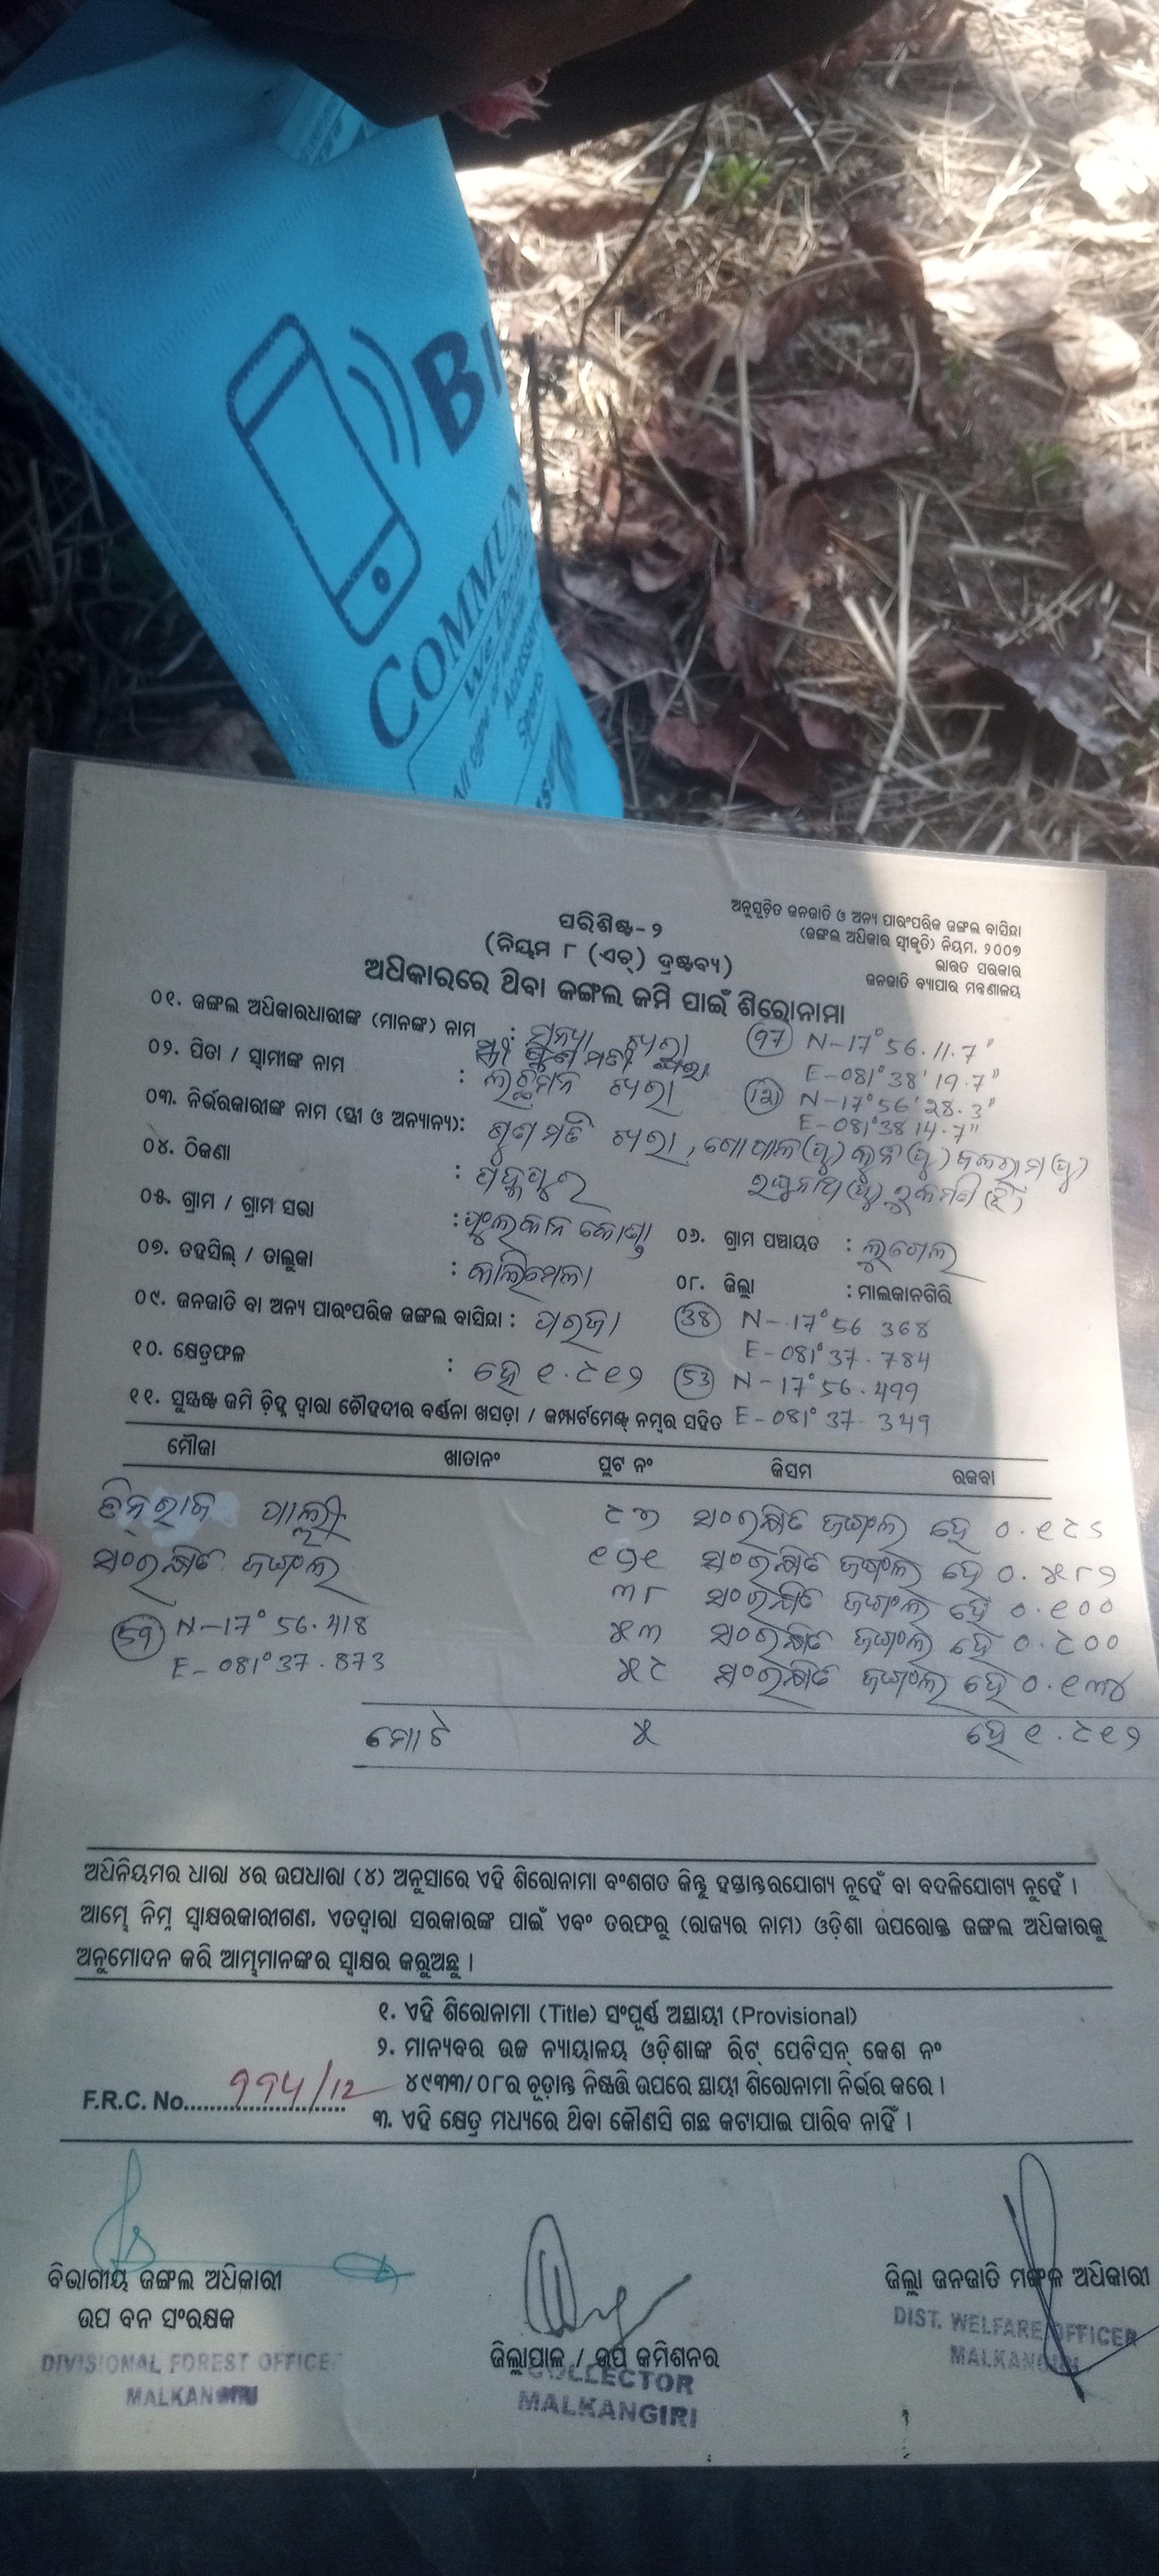 BI
COMMUN
We Deal
All type of Mobile
Accessori
Sports
ଅନୁସୂଚିତ ଜନଜାତି ଓ ଅନ୍ୟ ପାରଂପରିକ ଜଙ୍ଗଲ ବାସିନ୍ଦା
(ଜଙ୍ଗଲ ଅଧିକାର ସ୍ୱୀକୃତି) ନିୟମ, ୨୦୦୭
ଭାରତ ସରକାର
ଜନଜାତି ବ୍ୟାପାର ମନ୍ତ୍ରଣାଳୟ
ପରିଶିଷ୍ଟ-୨
(ନିୟମ ୮ (ଏଚ୍) ଦ୍ରଷ୍ଟବ୍ୟ)
ଅଧିକାରରେ ଥିବା ଜଙ୍ଗଲ ଜମି ପାଇଁ ଶିରୋନାମା
୦୧. ଜଙ୍ଗଲ ଅଧିକାରଧାରୀଙ୍କ (ମାନଙ୍କ) ନାମ : ମୁନ୍ୟା ଖରା
(97) N-17° 56. 11.7"
E-081° 38' 19.7"
୦୨. ପିତା / ସ୍ୱାମୀଙ୍କ ନାମ : ଲଛିମନ ଖରା
(121) N-17° 56' 28.3"
E-081° 38 14.7"
୦୩. ନିର୍ଭରକାରୀଙ୍କ ନାମ (ସ୍ତ୍ରୀ ଓ ଅନ୍ୟାନ୍ୟ): ଗୁଣମତି ଖରା, ଗୋପାଳ(ପୁ) ବଳରାମ(ପୁ)
ରଘୁନାଥ(ପୁ) ରୁକମଣୀ(ଝି)
୦୪. ଠିକଣା : ପଦ୍ମପୁର
୦୫. ଗ୍ରାମ / ଗ୍ରାମ ସଭା : ଫୁଲକାନ କୋଣ୍ଡା
୦୬. ଗ୍ରାମ ପଞ୍ଚାୟତ : ଲୁଗେଲ
୦୭. ତହସିଲ୍ / ତାଲୁକା : କାଲିମେଳା
୦୮. ଜିଲ୍ଲା : ମାଲକାନଗିରି
୦୯. ଜନଜାତି ବା ଅନ୍ୟ ପାରଂପରିକ ଜଙ୍ଗଲ ବାସିନ୍ଦା : ପରଜା
(38) N-17° 56 368
E-081° 37. 784
୧୦. କ୍ଷେତ୍ରଫଳ : ହେ ୧.୯୧୨
(53) N-17° 56. 499
୧୧. ସୁସ୍ପଷ୍ଟ ଜମି ଚିହ୍ନ ଦ୍ୱାରା ଚୌହଦୀର ବର୍ଣ୍ଣନା ଖସଡ଼ା / କମ୍ପାର୍ଟମେଣ୍ଟ ନମ୍ବର ସହିତ E-081° 37. 349
ମୌଜା ଖାତାନଂ ପ୍ଲଟ ନଂ କିସମ ରକବା
ଚିନ୍ରାଜ ପାଲ୍ଲୀ ୯୭ ସଂରକ୍ଷିତ ଜଙ୍ଗଲ ହେ ୦.୧୯୫
ସଂରକ୍ଷିତ ଜଙ୍ଗଲ ୧୨୧ ସଂରକ୍ଷିତ ଜଙ୍ଗଲ ହେ ୦.୫୮୨
୩୮ ସଂରକ୍ଷିତ ଜଙ୍ଗଲ ହେ ୦.୧୦୦
(59) N-17° 56. 418 ୫୩ ସଂରକ୍ଷିତ ଜଙ୍ଗଲ ହେ ୦.୯୦୦
E-081° 37. 873 ୫୯ ସଂରକ୍ଷିତ ଜଙ୍ଗଲ ହେ ୦.୧୩୪
ମୋଟ ୫ ହେ ୧.୯୧୨
ଅଧିନିୟମର ଧାରା ୪ର ଉପଧାରା (୪) ଅନୁସାରେ ଏହି ଶିରୋନାମା ବଂଶଗତ କିନ୍ତୁ ହସ୍ତାନ୍ତରଯୋଗ୍ୟ ନୁହେଁ ବା ବଦଳିଯୋଗ୍ୟ ନୁହେଁ ।
ଆମ୍ଭେ ନିମ୍ନ ସ୍ୱାକ୍ଷରକାରୀଗଣ, ଏତଦ୍ୱାରା ସରକାରଙ୍କ ପାଇଁ ଏବଂ ତରଫରୁ (ରାଜ୍ୟର ନାମ) ଓଡ଼ିଶା ଉପରୋକ୍ତ ଜଙ୍ଗଲ ଅଧିକାରକୁ
ଅନୁମୋଦନ କରି ଆମ୍ଭମାନଙ୍କର ସ୍ୱାକ୍ଷର କରୁଅଛୁ ।
୧. ଏହି ଶିରୋନାମା (Title) ସଂପୂର୍ଣ୍ଣ ଅସ୍ଥାୟୀ (Provisional)
୨. ମାନ୍ୟବର ଉଚ୍ଚ ନ୍ୟାୟାଳୟ ଓଡ଼ିଶାଙ୍କ ରିଟ୍ ପେଟିସନ୍ କେଶ ନଂ
୪୯୩୩/୦୮ର ଚୂଡ଼ାନ୍ତ ନିଷ୍ପତ୍ତି ଉପରେ ସ୍ଥାୟୀ ଶିରୋନାମା ନିର୍ଭର କରେ ।
F.R.C. No. 994/12
୩. ଏହି କ୍ଷେତ୍ର ମଧ୍ୟରେ ଥିବା କୌଣସି ଗଛ କଟାଯାଇ ପାରିବ ନାହିଁ ।
ବିଭାଗୀୟ ଜଙ୍ଗଲ ଅଧିକାରୀ
ଉପ ବନ ସଂରକ୍ଷକ
DIVISIONAL FOREST OFFICE
MALKANGIRI
ଜିଲ୍ଲାପାଳ / ଉପ କମିଶନର
COLLECTOR
MALKANGIRI
ଜିଲ୍ଲା ଜନଜାତି ମଙ୍ଗଳ ଅଧିକାରୀ
DIST. WELFARE OFFICER
MALKANGIRI